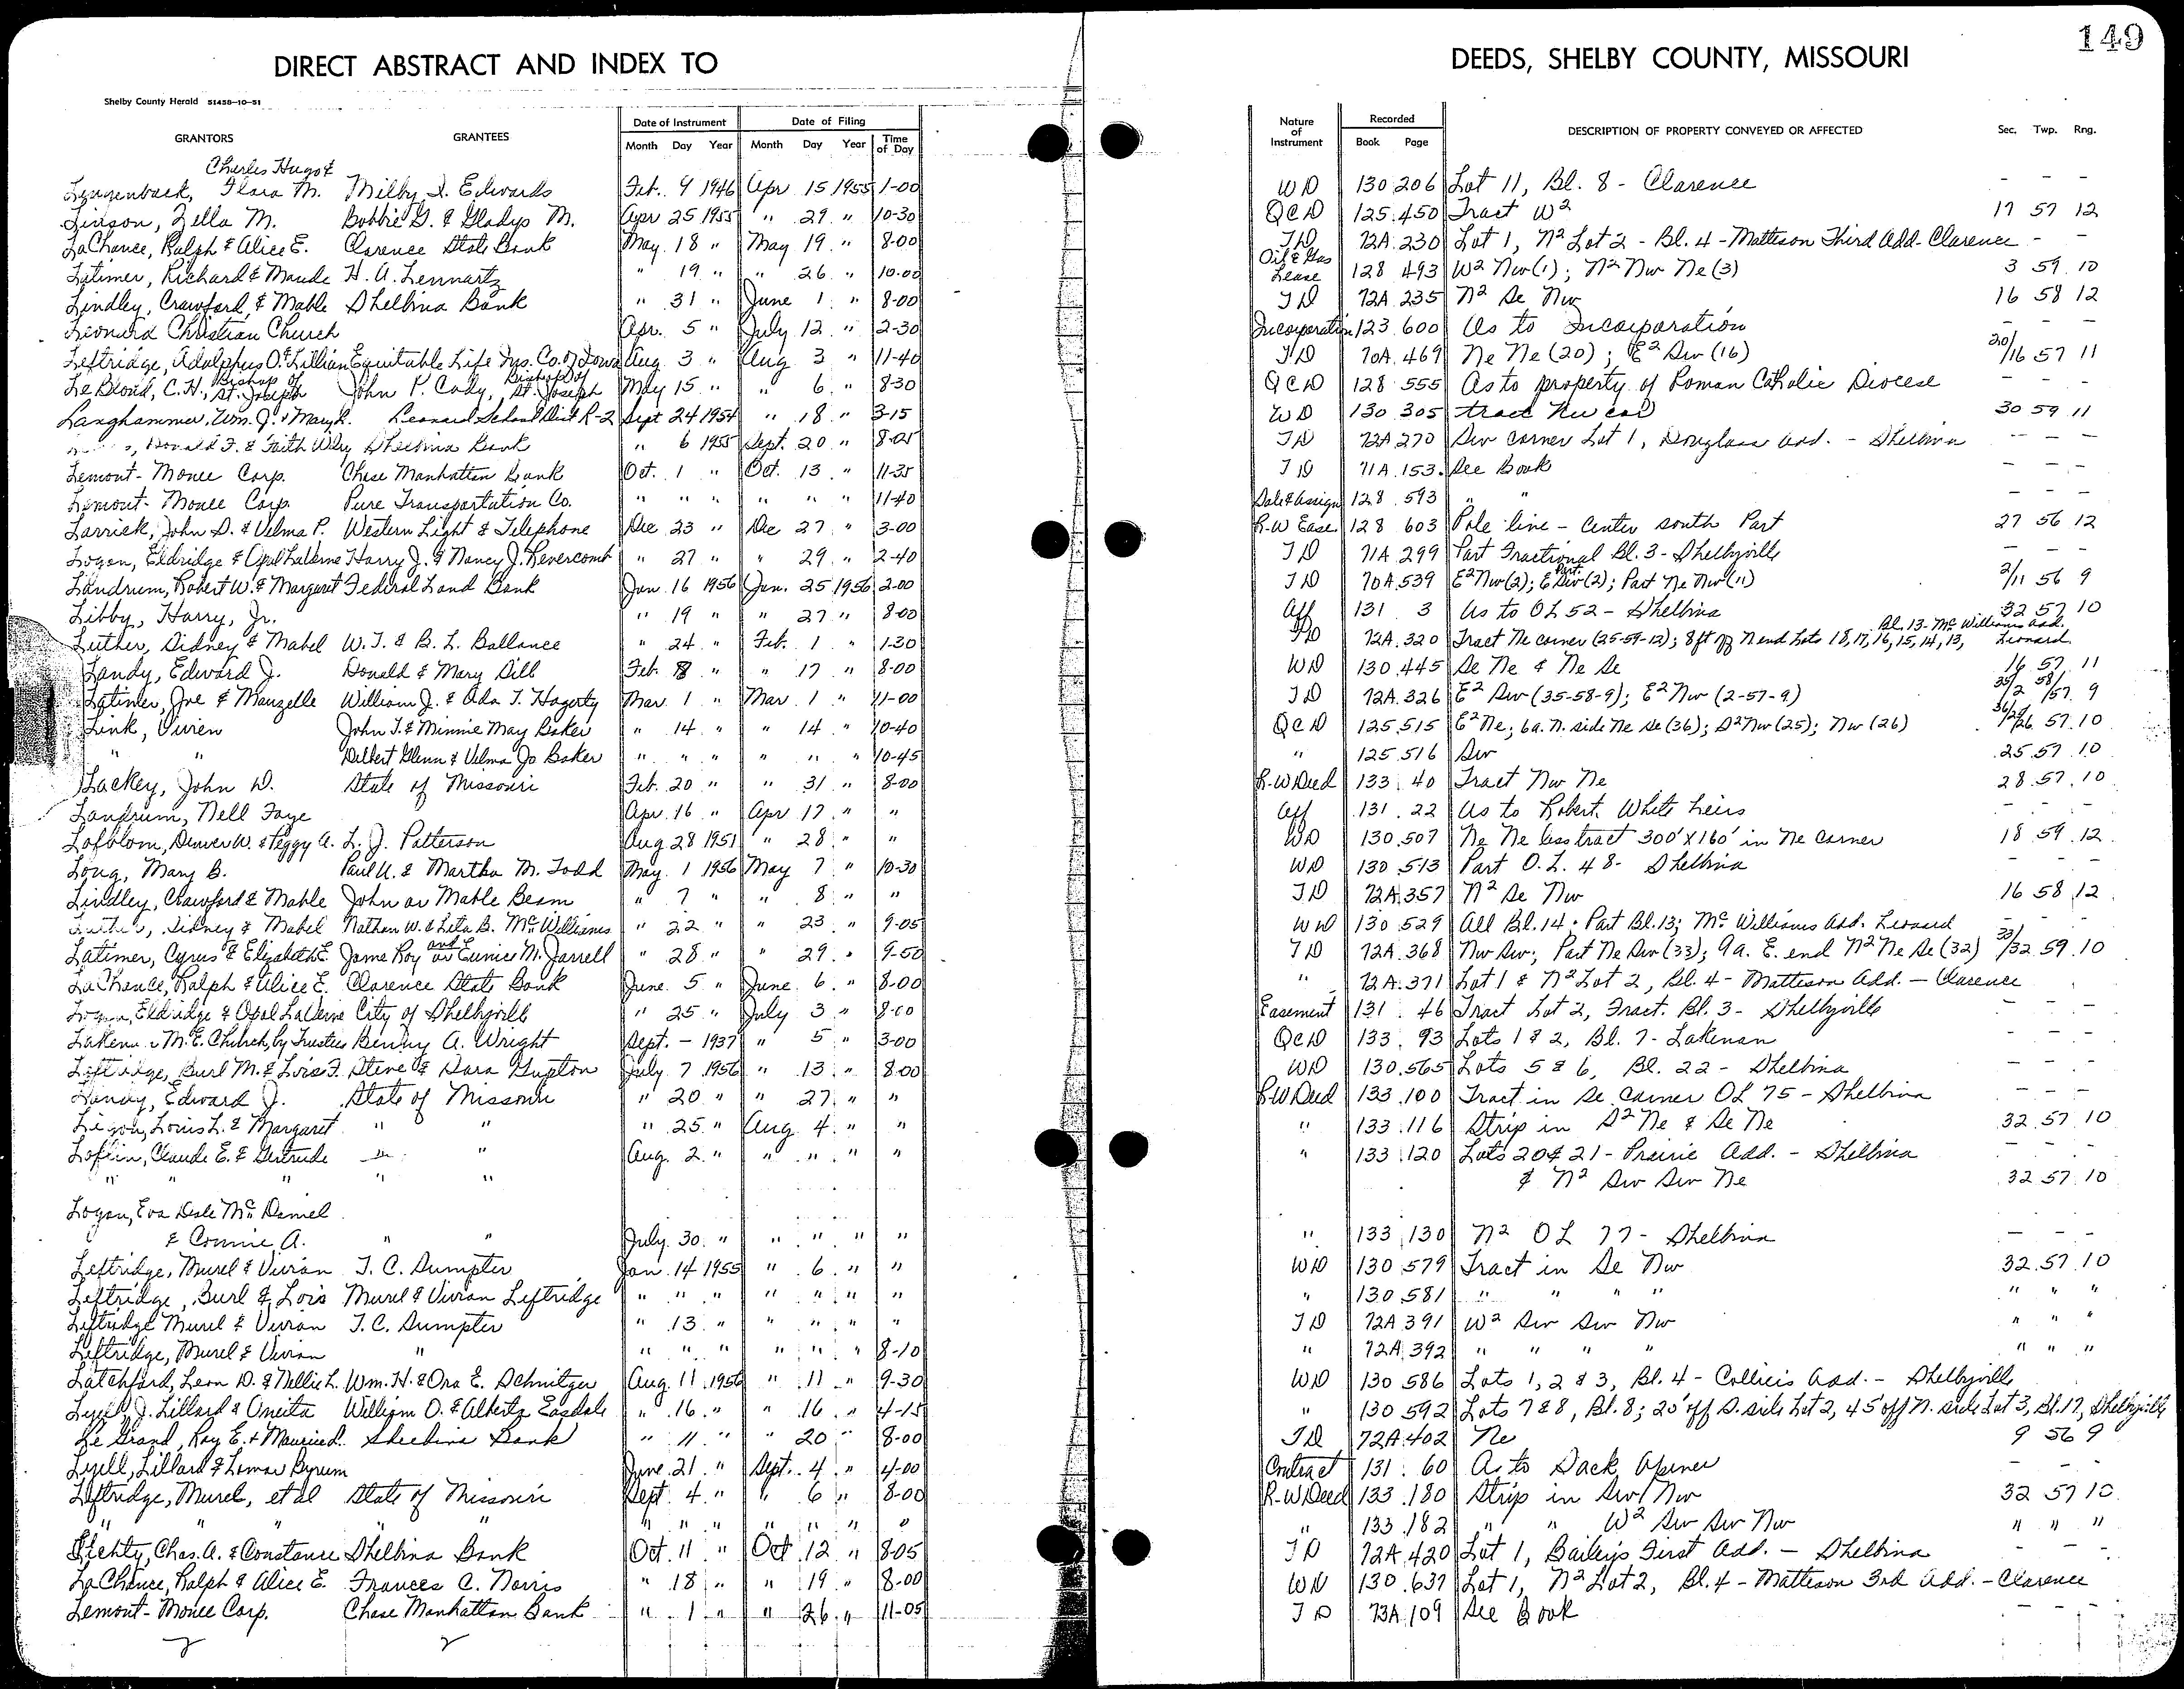 149
DIRECT ABSTRACT AND INDEX TO DEEDS, SHELBY COUNTY, MISSOURI
Shelby County Herald 51458-10-51
GRANTORS GRANTEES Date of Instrument Month Day Year Date of Filing Month Day Year Time of Day Nature of Instrument Recorded Book Page DESCRIPTION OF PROPERTY CONVEYED OR AFFECTED Sec. Twp. Rng.
Charles Hugo &
Flora M. Milby I. Edwards Feb. 9 1946 Apr 15 1955 1-00 WD 130 206 Lot 11, Bl. 8 - Clarence - - -
Zella M. Bobbie G. & Gladys M. Apr 25 1955 " 29 " 10-30 QCD 125 450 Tract W2 17 57 12
LaChance, Ralph & Alice E. Clarence State Bank May 18 " May 19 " 8-00 TD 72A 230 Lot 1, N2 Lot 2 - Bl. 4 - Matteson Third Add. Clarence - -
Latimer, Richard & Maude H. A. Lennartz " 19 " " 26 " 10-00 Oil & Gas Lease 128 493 W2 Nw (1); N2 Nw Ne (3) 3 59 10
Lindley, Crawford, & Mable Shelbina Bank " 31 " June 1 " 8-00 TD 72A 235 N2 Se Nw 16 58 12
Leonard Christian Church Apr. 5 " July 12 " 2-30 Incorporation 123 600 As to Incorporation - - -
Leftridge, Adolphus O. & Lillian Equitable Life Ins. Co. of Iowa Aug 3 " Aug 3 " 11-40 TD 70A 469 Ne Ne (20); E2 Sw (16) 20/16 57 11
LeBlond, C. H., Bishop of St. Joseph John P. Cody, Bishop of St. Joseph May 15 " " 6 " 8-30 QCD 128 555 As to property of Roman Catholic Diocese - - -
Langhammer, Wm. J. & Mary L. Leonard School Dist R-2 Sept 24 1954 " 18 " 3-15 WD 130 305 tract Nw cor 30 59 11
Donald F. & Faith Wiley Shelbina Bank " 6 1955 Sept. 20 " 8-05 TD 72A 270 Sw corner Lot 1, Douglass Add. - Shelbina - - -
Lemont-Monee Corp. Chase Manhattan Bank Oct. 1 " Oct. 13 " 11-35 TD 71A 153 See Book - - -
Lemont-Monee Corp. Pure Transportation Co. " " " " " " 11-40 Sale & Assign 128 593 " " - - -
Larrick, John D. & Velma P. Western Light & Telephone Dec 23 " Dec 27 " 3-00 R-W Ease 128 603 Pole line - Center south Part 27 56 12
Logan, Eldridge & Opal LaVerne Harry J. & Nancy J. Revercomb " 27 " " 29 " 2-40 TD 71A 299 Part Fractional Bl. 3 - Shelbyville - - -
Landrum, Robert W. & Margaret Federal Land Bank Jan 16 1956 Jan. 25 1956 2-00 TD 70A 539 E2 Nw (2); E Part Sw (2); Part Ne Nw (11) 2/11 56 9
Libby, Harry, Jr. " 19 " " 27 " 8-00 Aff 131 3 As to OL 52 - Shelbina 32 57 10
Luther, Sidney & Mabel W. T. & B. L. Ballance " 24 " Feb. 1 " 1-30 TD 72A 320 Tract Ne corner (25-59-12); 8 ft off N end Lots 18, 17, 16, 15, 14, 13, Bl. 13 - McWilliams Add. Leonard
Landy, Edward J. Donald & Mary Dill Feb 8 " " 17 " 8-00 WD 130 445 Se Ne & Ne Se 16 57 11
Latimer, Joe & Manzelle William J. & Ada T. Hagerty Mar. 1 " Mar. 1 " 11-00 TD 72A 326 E2 Sw (35-58-9); E2 Nw (2-57-9) 35/2 58/57 9
Link, Vivien John T. & Minnie May Baker " 14 " " 14 " 10-40 QCD 125 515 E2 Ne; 6a. N. side Ne Se (36); S2 Nw (25); Nw (26) 57 10
" " Delbert Glenn & Velma Jo Baker " " " " " " 10-45 " 125 516 Sw 25 57 10
Lackey, John D. State of Missouri Feb. 20 " " 31 " 8-00 R-W Deed 133 40 Tract Nw Ne 28 57 10
Landrum, Nell Faye Apr. 16 " Apr 17 " " Aff 131 22 As to Robert White heirs - - -
Lofblom, Denver W. & Peggy A. L. J. Patterson Aug 28 1951 " 28 " " WD 130 507 Ne Ne less tract 300' X 160' in Ne corner 18 59 12
Long, Mary B. Paul U. & Martha M. Todd May 1 1956 May 7 " 10-30 WD 130 513 Part O.L. 48 - Shelbina - - -
Lindley, Crawford & Mable John or Mable Beam " 7 " " 8 " " TD 72A 357 N2 Se Nw 16 58 12
Luther, Sidney & Mabel Nathan W. & Leta B. McWilliams " 22 " " 23 " 9-05 WD 130 529 All Bl. 14 - Part Bl. 13; McWilliams Add. Leonard - - -
Latimer, Cyrus & Elizabeth E. Jame Roy and or Eunice M. Jarrell " 28 " " 29 " 9-50 TD 72A 368 Nw Sw; Part Ne Sw (33); 9a. E. end N2 Ne Se (32) 33/32 59 10
LaChance, Ralph & Alice E. Clarence State Bank June 5 " June 6 " 8-00 " 72A 371 Lot 1 & N2 Lot 2, Bl. 4 - Matteson Add. - Clarence
Logan, Eldridge & Opal LaVerne City of Shelbyville " 25 " July 3 " 8-00 Easement 131 46 Tract Lot 2, Fract. Bl. 3 - Shelbyville - - -
Lakenan M. E. Church, by Trustees Benny A. Wright Sept. - 1937 " 5 " 3-00 QCD 133 93 Lots 1 & 2, Bl. 7 - Lakenan - - -
Leftridge, Burl M. & Lois F. Steve & Dara Gupton July 7 1956 " 13 " 8-00 WD 130 565 Lots 5 & 6, Bl. 22 - Shelbina - - -
Landy, Edward J. State of Missouri " 20 " " 27 " " R-W Deed 133 100 Tract in Se corner OL 75 - Shelbina - - -
Ligon, Louis L. & Margaret " " " 25 " Aug 4 " " " 133 116 Strip in S2 Ne & Se Ne 32 57 10
Loflin, Claude E. & Gertrude " " Aug. 2 " " " " " " 133 120 Lots 20 & 21 - Prairie Add. - Shelbina - - -
" " " " " & N2 Sw Sw Ne 32 57 10
Logan, Eva Dale McDaniel
& Connie A. " " July 30 " " " " " " 133 130 N2 OL 77 - Shelbina - - -
Leftridge, Murel & Vivian T. C. Sumpter Jan. 14 1955 " 6 " " WD 130 579 Tract in Se Nw 32 57 10
Leftridge, Burl & Lois Murel & Vivian Leftridge " " " " " " " " 130 581 " " " " " " "
Leftridge Murel & Vivian T. C. Sumpter " 13 " " " " " TD 72A 391 W2 Sw Sw Nw " " "
Leftridge, Murel & Vivian " " " " " " " 8-10 " 72A 392 " " " " " " "
Latchford, Leon D. & Nellie L. Wm. H. & Ora E. Schnitzer Aug. 11 1956 " 11 " 9-30 WD 130 586 Lots 1, 2 & 3, Bl. 4 - Colliers Add. - Shelbyville
Lyell, J. Lillard & Oneita William O. & Alberta Easdale " 16 " " 16 " 4-15 " 130 592 Lots 7 & 8, Bl. 8; 20' off S. side Lot 2, 45' off N. side Lot 3, Bl. 17, Shelbyville
Le Grand, Roy E. & Maurice L. Shelbina Bank " 11 " " 20 " 8-00 TD 72A 402 Ne 9 56 9
Lyell, Lillard & Lomar Byrum June 21 " Sept. 4 " 4-00 Contract 131 60 As to Sack Opener - - -
Leftridge, Murel, et al State of Missouri Sept. 4 " " 6 " 8-00 R-W Deed 133 180 Strip in Sw Nw 32 57 10
" " " " " " " " " " " " 133 182 " " W2 Sw Sw Nw " " "
Liehty, Chas. A. & Constance Shelbina Bank Oct 11 " Oct 12 " 8-05 TD 72A 420 Lot 1, Bailey's First Add. - Shelbina - - -
LaChance, Ralph & Alice E. Frances C. Norris " 18 " " 19 " 8-00 WD 130 637 Lot 1, N2 Lot 2, Bl. 4 - Matteson 3rd Add. - Clarence
Lemont-Monee Corp. Chase Manhattan Bank " 1 " " 26 " 11-05 TD 73A 109 See Book - - -